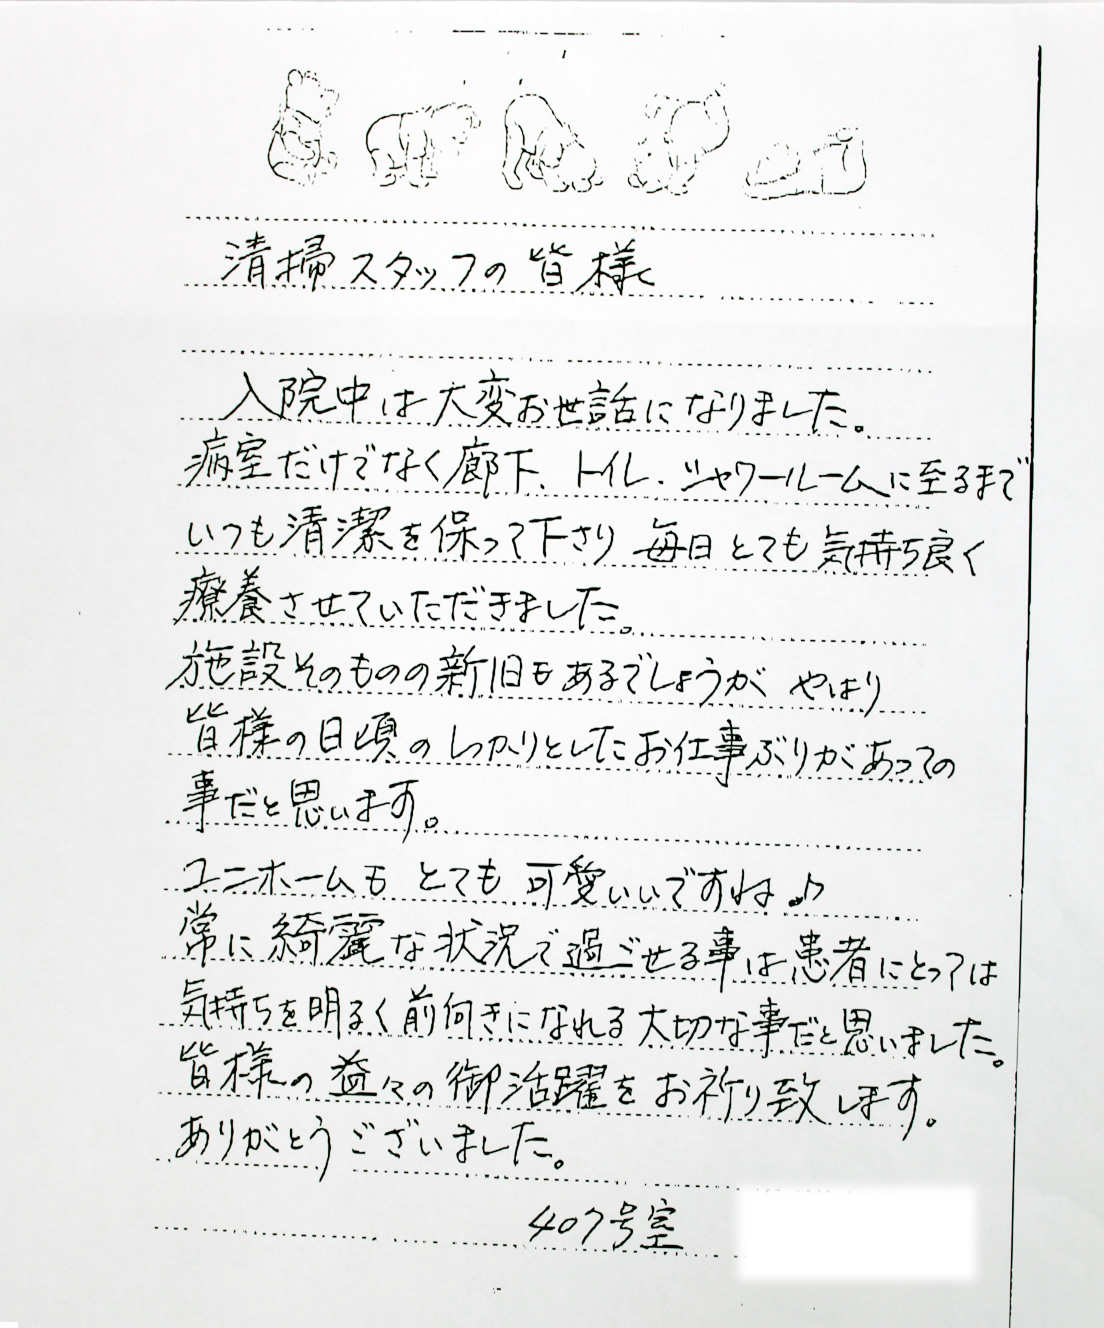 清掃スタッフの皆様
入院中は大変お世話になりました。
病室だけでなく廊下、トイレ、シャワールームに至るまで
いつも清潔を保って下さり 毎日とても気持ち良く
療養させていただきました。
施設そのものの新旧もあるでしょうが やはり
皆様の日頃のしっかりとしたお仕事ぶりがあっての
事だと思います。
ユニホームも とても 可愛いいですね♪
常に綺麗な状況で過ごせる事は患者にとっては
気持ちを明るく前向きになれる大切な事だと思いました。
皆様の益々の御活躍をお祈り致します。
ありがとうございました。
407号室